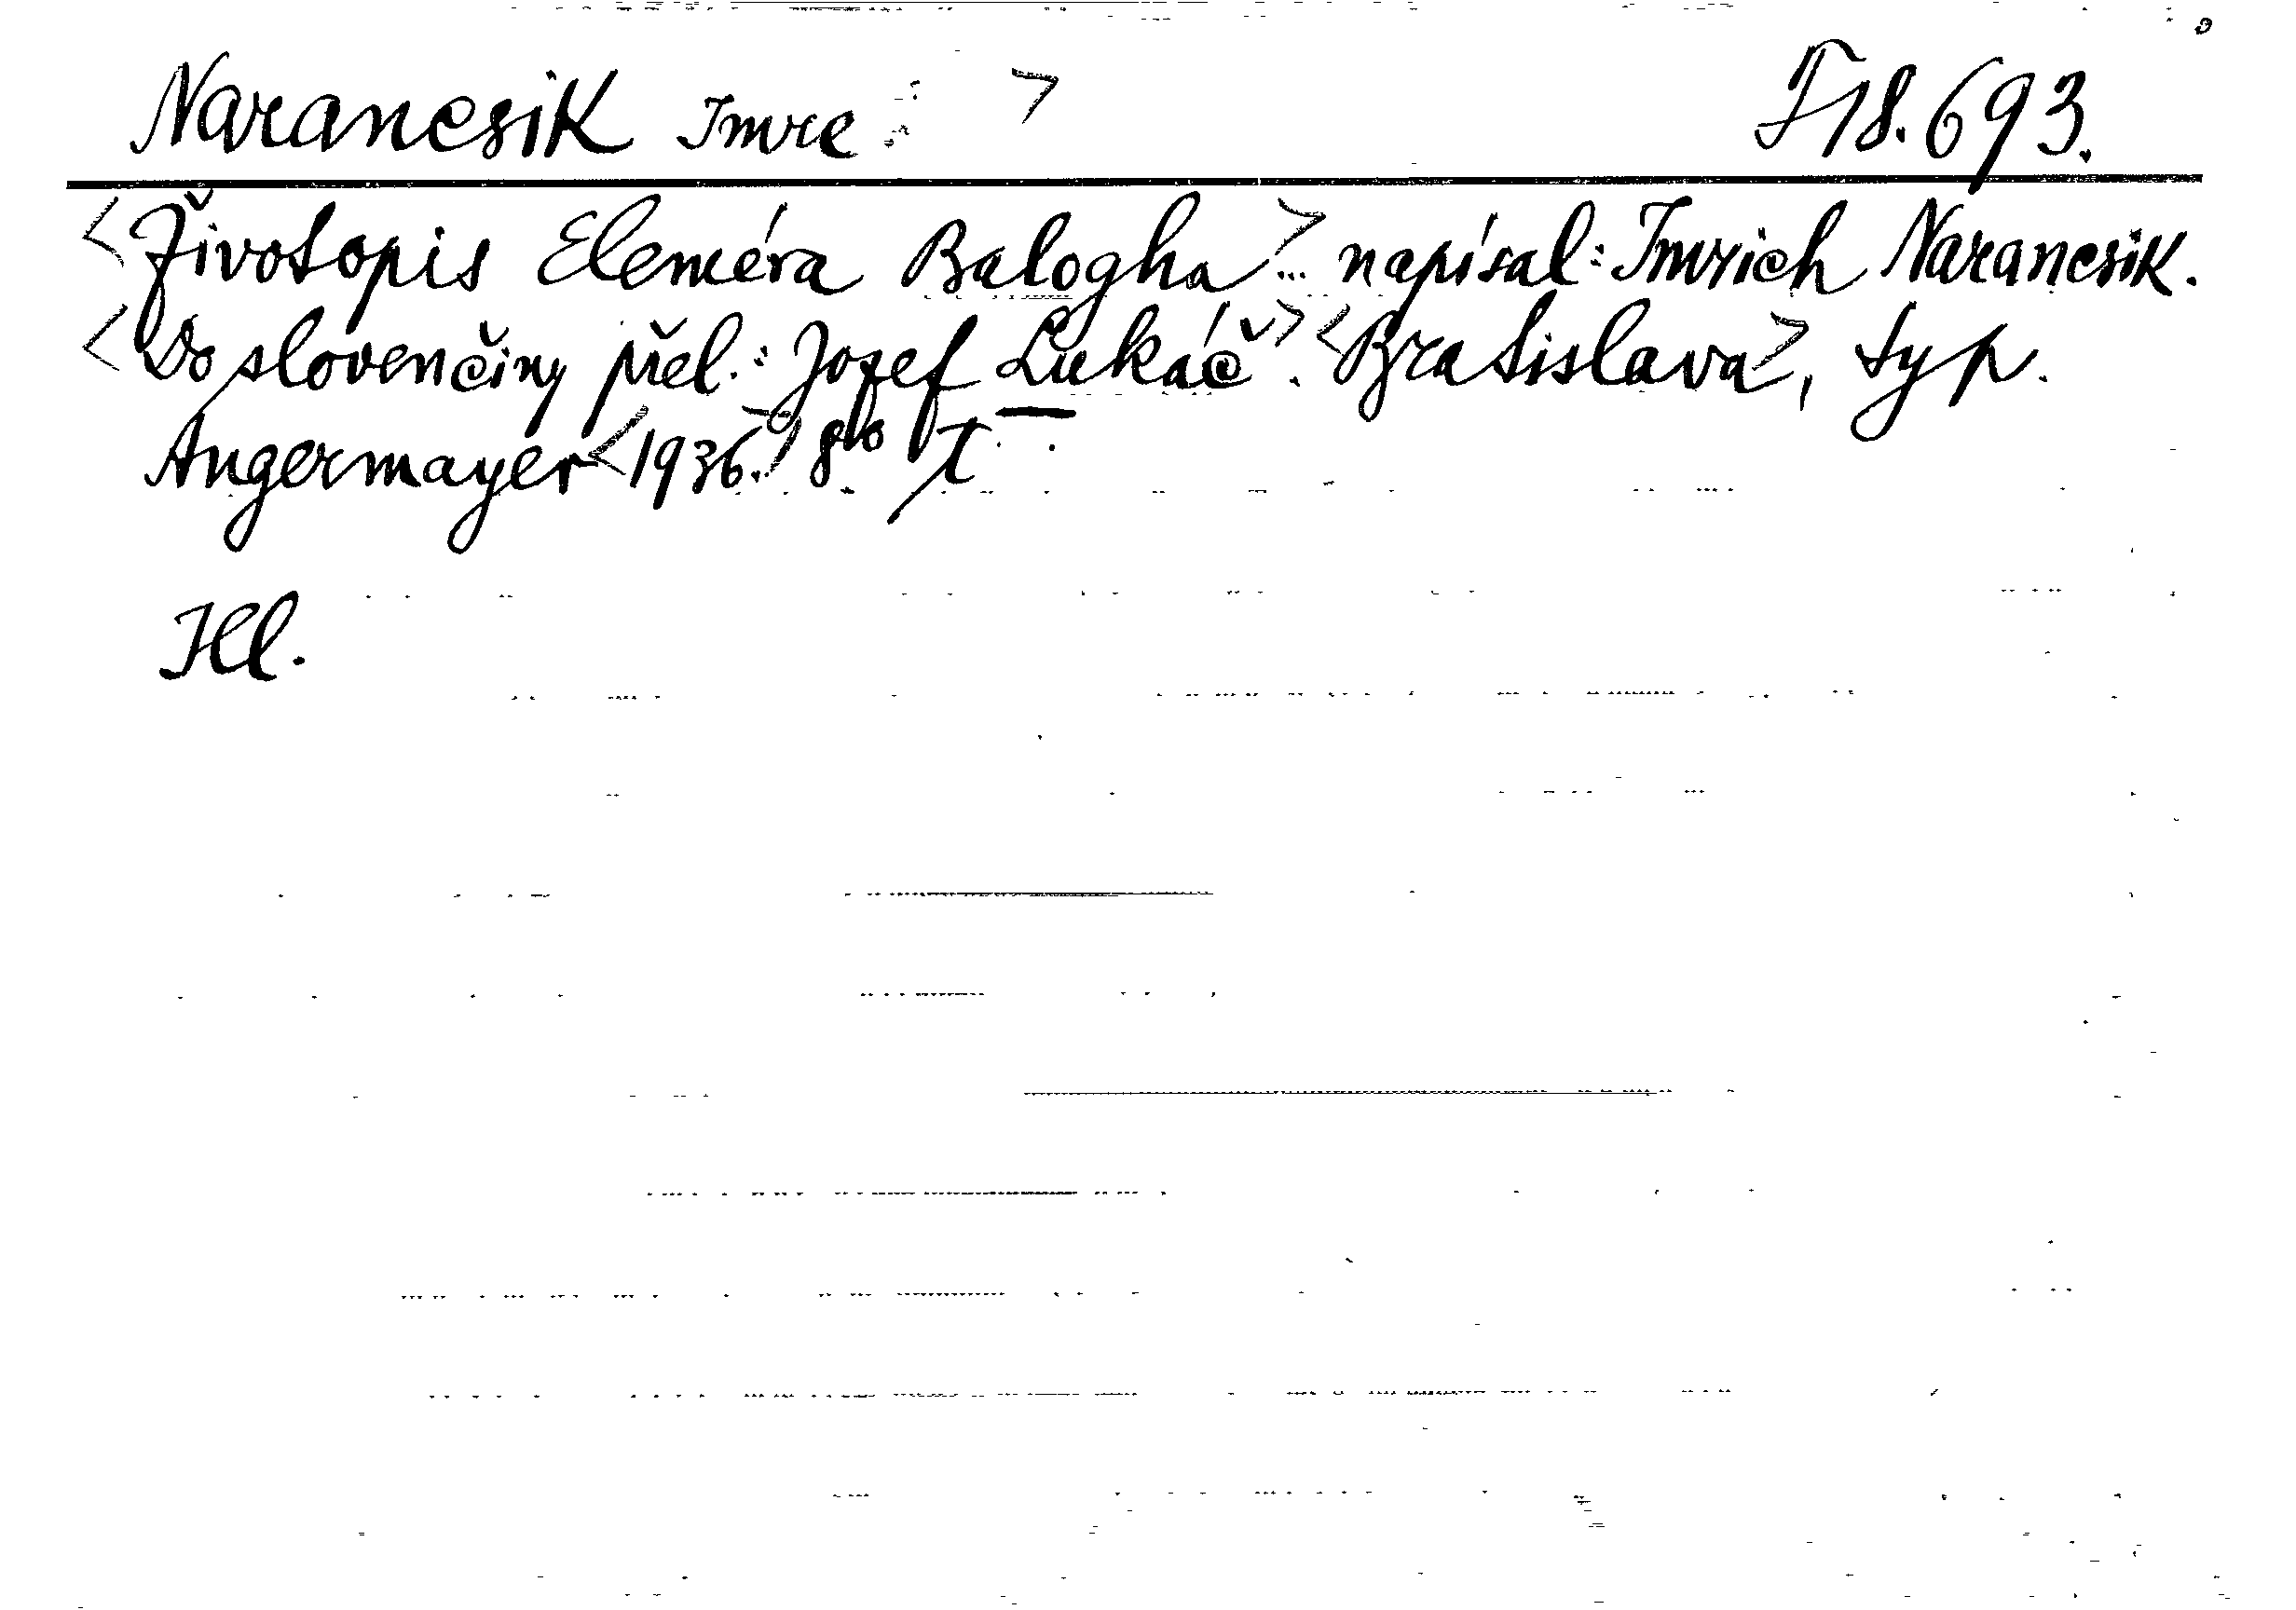 Narancsik Imre > F 18.693.
<Životopis Eleméra Balogha>... napísal: Imrich Narancsik.
<Do slovenčiny přel.: Jozef Lukáč>. <Bratislava>, typ.
Angermayer <1936.> 8vo
Ill.